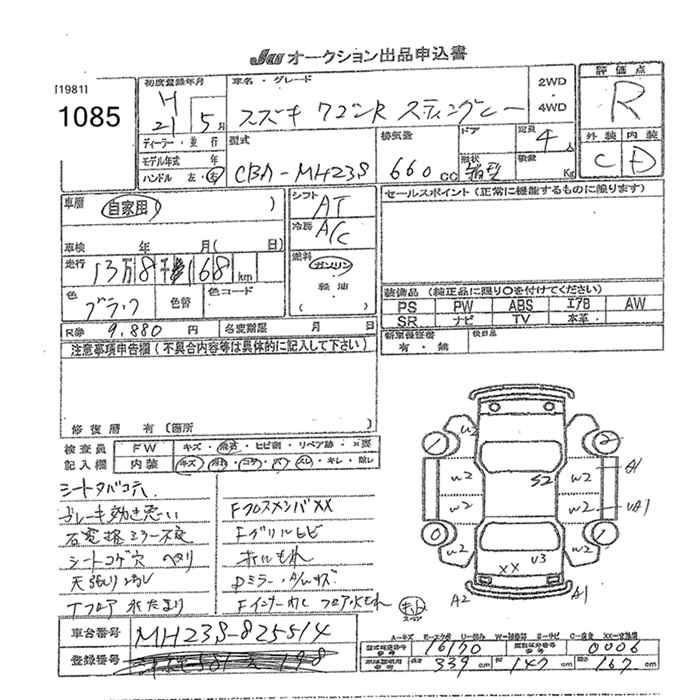 JU オークション出品申込書
[1981]
1085
初度登録年月
H 21 5月
ディーラー・並 行
モデル年式 年
ハンドル 左・右
車名・グレード
スズキ ワゴンR スティングレー
2WD・4WD
型式
CBA-MH23S
排気量
660 CC
ドア
形状
箱型
定員
4人
積載 Kg
評価点
R
外装 内装
C D
車歴
自家用 ( )
車検 年 月( 日)
走行
13万8千168 km
色
ブラック
色替
色コード
R券 9,880 円
名変期限 月 日
シフト
AT
冷房
A/C
燃料
ガソリン・軽油
( )
セールスポイント (正常に機能するものに限ります)
装備品 (純正品に限り○を付けてください)
PS PW ABS エアB AW
SR ナビ TV 本革
新車保証書
有・無
後日品
注意事項申告欄 (不具合内容等は具体的に記入して下さい)
修復歴 有 [箇所 ]
検査員記入欄
FW キズ・飛石・ヒビ割・リペア跡・×要
内装 キズ・汚れ・コゲ・穴・スレ・キレ・除し
シートタバコ穴
ブレーキ効き悪い
右電格ミラー不良
シートコゲ穴 ヘタリ
Tフロア 水たまり
FクロスメンバXX
Fグリルヒビ
オイルもれ
U2 2 A1
W2 S2 W2
W2 W2 UA1
0 W2 W2
XX U3
A2 A1
車台番号 MH23S-825514
登録番号
A-キズ E-エクボ U-凹み W-補修等 S-サビ C-腐食 XX-交換歴
型式指定番号 16170
類別区分番号 0006
長さ 339 cm 幅 147 cm 高さ 167 cm